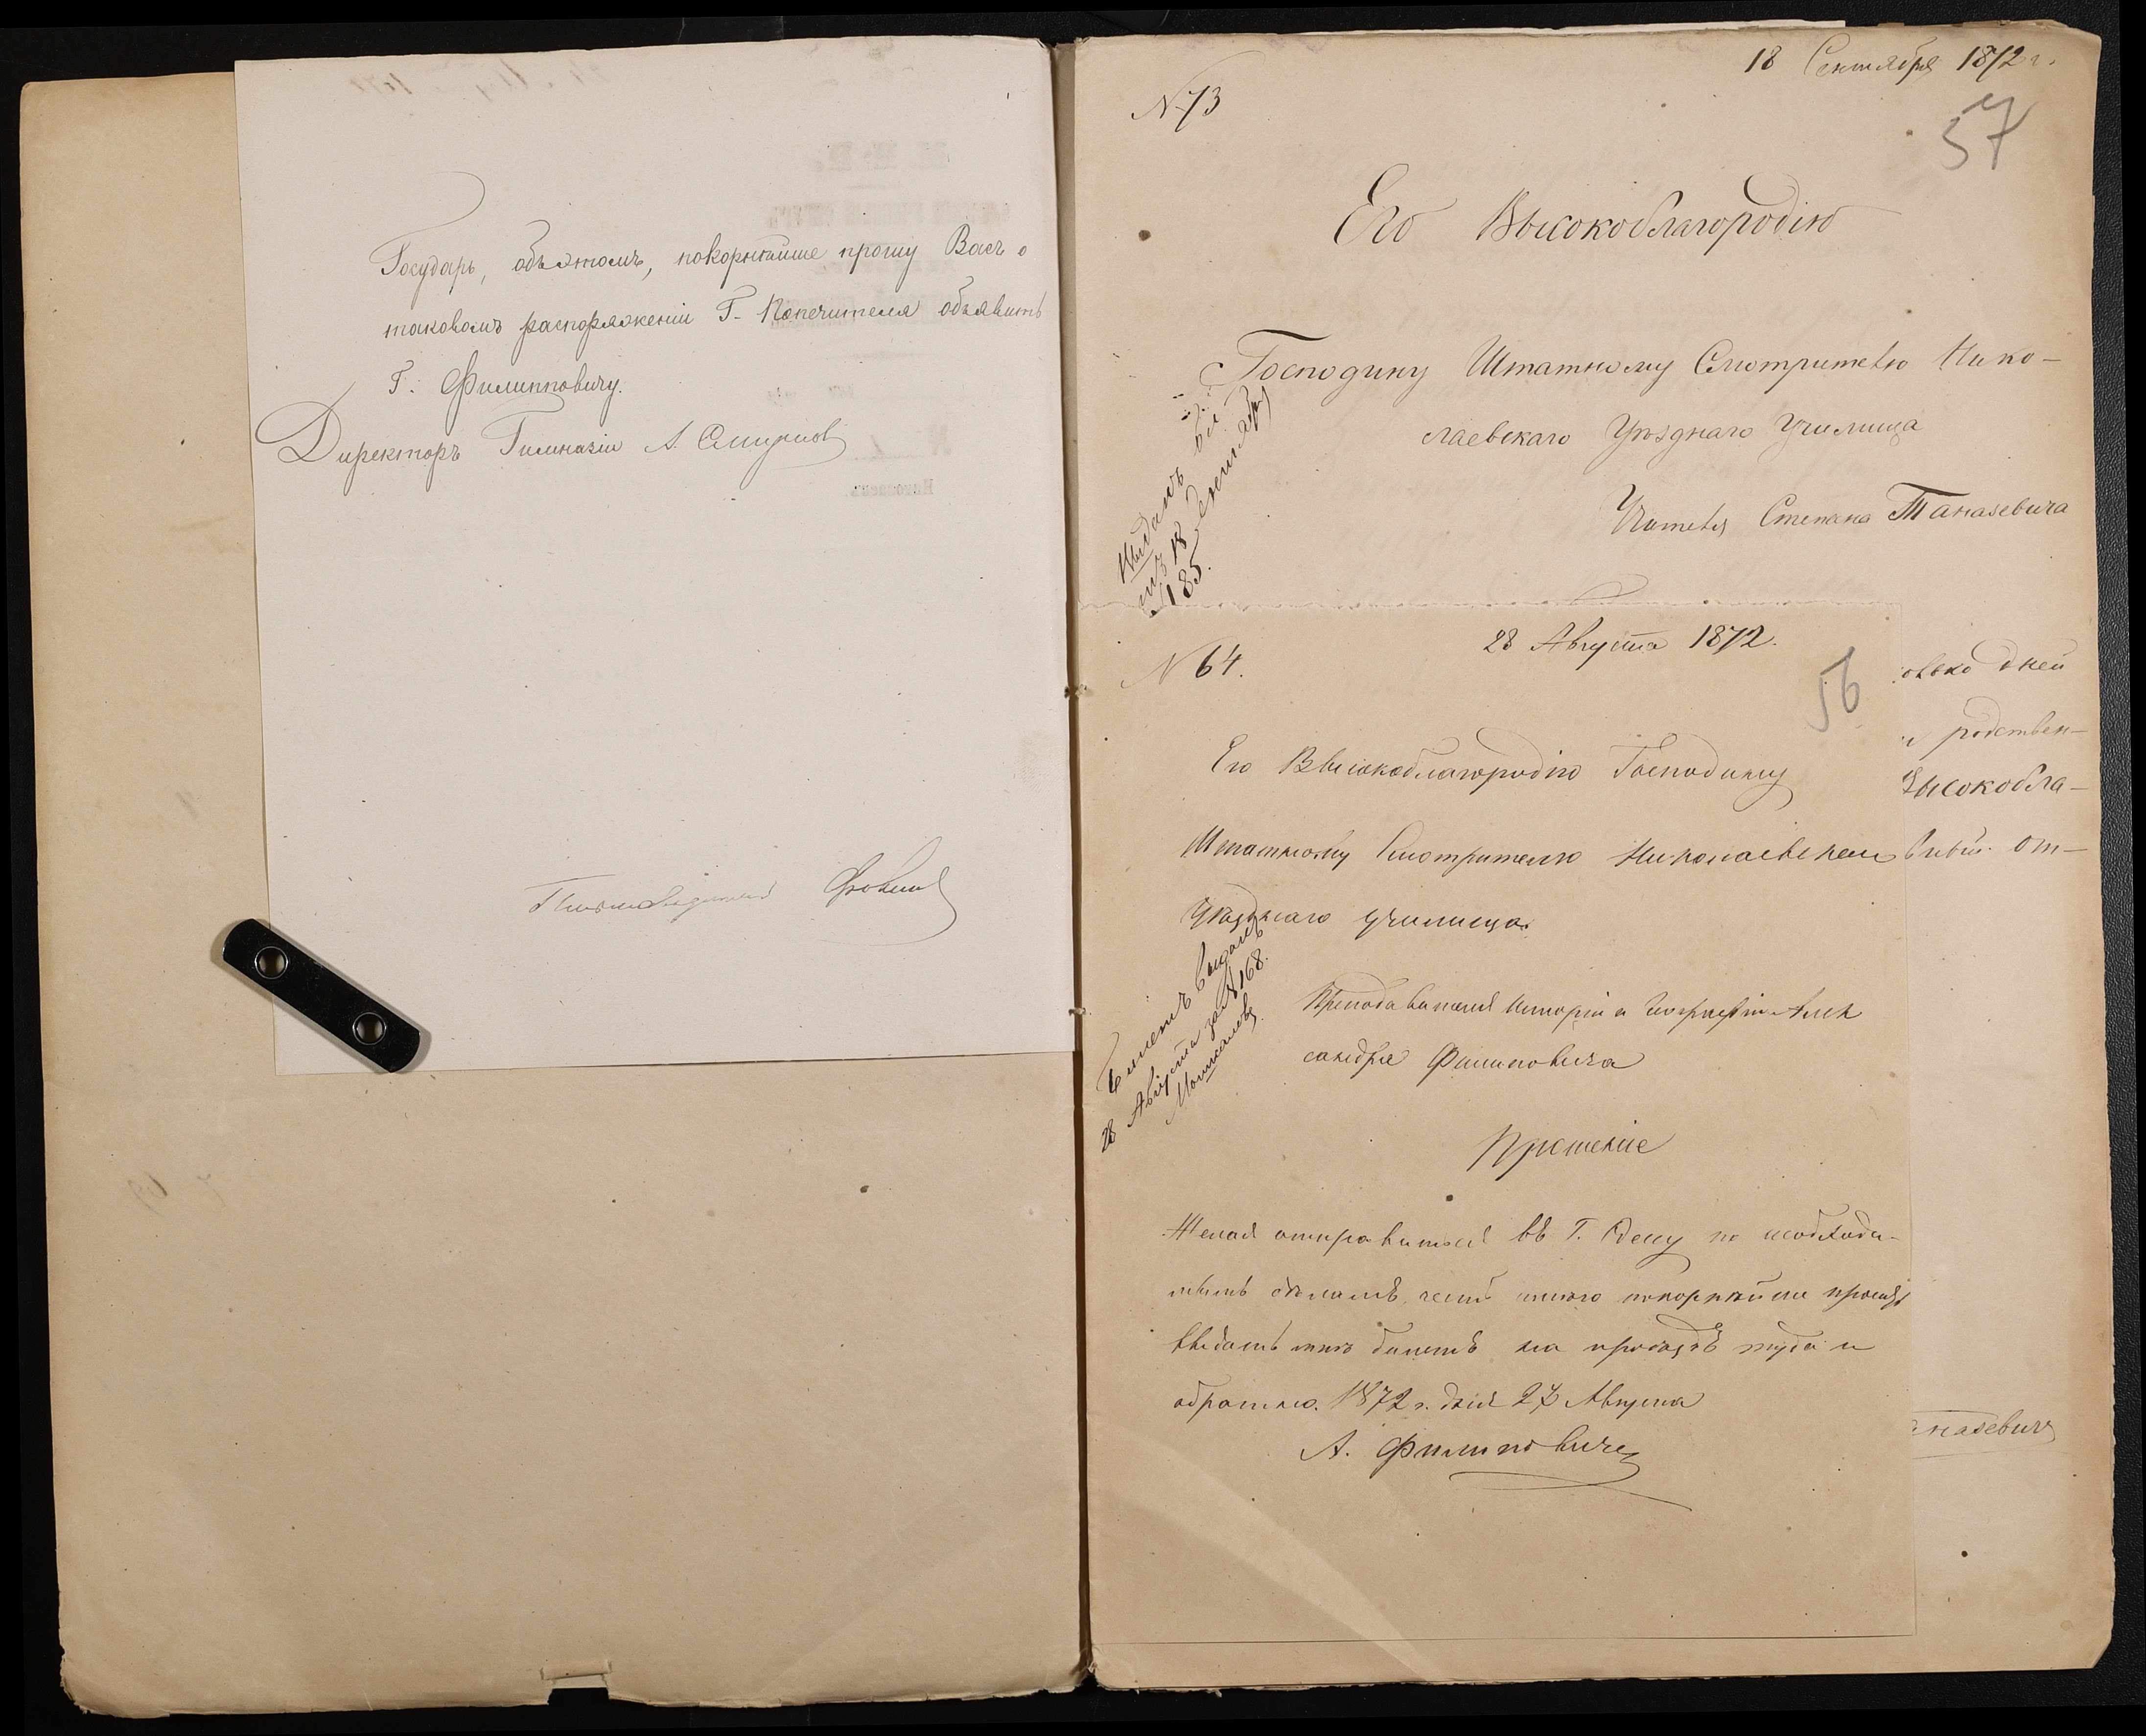 Государь, объ этомъ, покорнѣйше прошу Васъ о
таковомъ распоряженіи Г. Попечителя объявить
Г. Филипповичу.
Директоръ Гимназіи А. Смирновъ
Письмоводитель
18 Сентября 1872 г.
№ 73
57
Его Высокоблагородію
Господину Штатному Смотрителю Нико-
лаевскаго Уѣзднаго Училища
Учителя Степана Таназевича
18 Сентября
185.
28 Августа 1872.
№ 64.
56
Его Высокоблагородію Господину
Штатному Смотрителю Николаевскаго
Уѣзднаго училища.
Билетъ выданъ
28 Августа за № 168.
Преподавателя Исторіи и Географіи Алек
сандра Филиповича
Прошеніе
Желая отправиться въ Г. Одессу по необходи-
мымъ дѣламъ, честь имѣю покорнѣйше просить
выдать мнѣ билетъ на проѣздъ туда и
обратно. 1872 г. дня 27 Августа
А. Филиповичъ
олько дней
родствен-
Высокобла-
от-
назевичъ